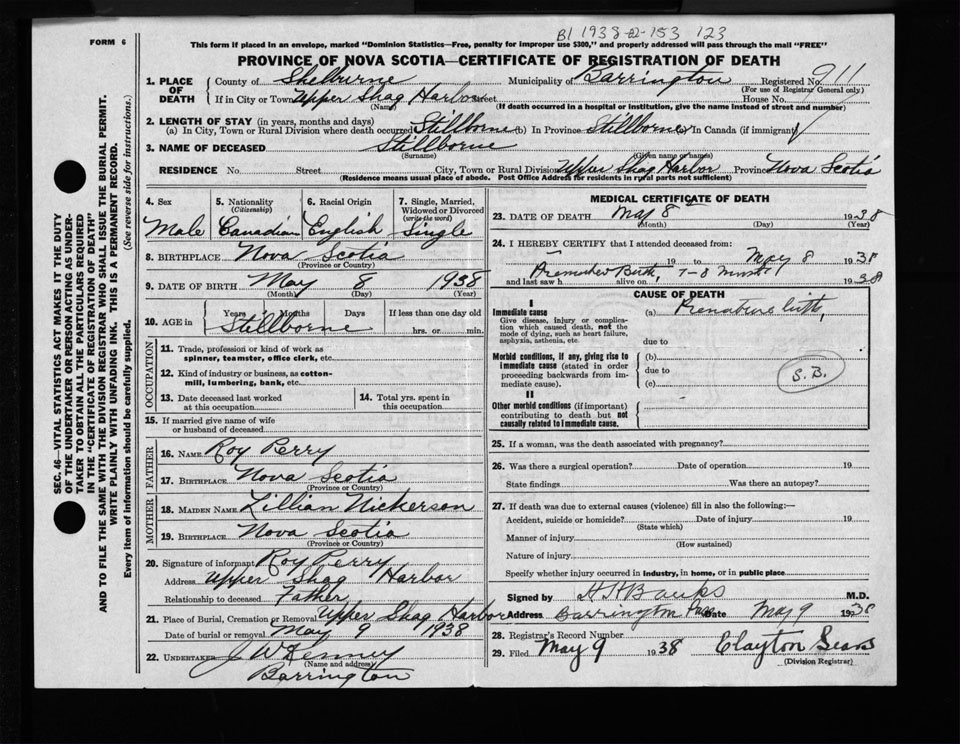 B1 1938-02-153 123
FORM 6
This form if placed in an envelope, marked "Dominion Statistics—Free, penalty for improper use $300," and properly addressed will pass through the mail "FREE"
PROVINCE OF NOVA SCOTIA—CERTIFICATE OF REGISTRATION OF DEATH
SEC. 46—VITAL STATISTICS ACT MAKES IT THE DUTY
OF THE UNDERTAKER OR PERSON ACTING AS UNDER-
TAKER TO OBTAIN ALL THE PARTICULARS REQUIRED
IN THE "CERTIFICATE OF REGISTRATION OF DEATH"
AND TO FILE THE SAME WITH THE DIVISION REGISTRAR WHO SHALL ISSUE THE BURIAL PERMIT.
WRITE PLAINLY WITH UNFADING INK. THIS IS A PERMANENT RECORD.
Every item of information should be carefully supplied. (See reverse side for instructions.)
1. PLACE OF DEATH County of Shelburne Municipality of Barrington Registered No. 911
(For use of Registrar General only)
If in City or Town Upper Shag Harbor Street House No.
(Name) (If death occurred in a hospital or institution, give the name instead of street and number)
2. LENGTH OF STAY (in years, months and days)
(a) In City, Town or Rural Division where death occurred Stillborne (b) In Province Stillborne (c) In Canada (if immigrant)
3. NAME OF DECEASED Stillborne
(Surname) (Given name or names)
RESIDENCE No. Street City, Town or Rural Division Upper Shag Harbor Province Nova Scotia
(Residence means usual place of abode. Post Office Address for residents in rural parts not sufficient)
4. Sex 5. Nationality (Citizenship) 6. Racial Origin 7. Single, Married, Widowed or Divorced (write the word)
Male Canadian English Single
8. BIRTHPLACE Nova Scotia
(Province or Country)
9. DATE OF BIRTH May 8 1938
(Month) (Day) (Year)
10. AGE in Years Months Days If less than one day old
Stillborne hrs. or min.
OCCUPATION
11. Trade, profession or kind of work as
spinner, teamster, office clerk, etc.
12. Kind of industry or business, as cotton-
mill, lumbering, bank, etc.
13. Date deceased last worked at this occupation 14. Total yrs. spent in this occupation
15. If married give name of wife
or husband of deceased
FATHER
16. NAME Roy Perry
17. BIRTHPLACE Nova Scotia
(Province or Country)
MOTHER
18. MAIDEN NAME Lillian Nickerson
19. BIRTHPLACE Nova Scotia
(Province or Country)
20. Signature of informant Roy Perry
Address Upper Shag Harbor
Relationship to deceased Father
21. Place of Burial, Cremation or Removal Upper Shag Harbor
Date of burial or removal May 9 1938
22. UNDERTAKER J W Kenney
(Name and address)
Barrington
MEDICAL CERTIFICATE OF DEATH
23. DATE OF DEATH May 8 1938
(Month) (Day) (Year)
24. I HEREBY CERTIFY that I attended deceased from:
19 to May 8 1938
Birth, 7-8
and last saw h alive on 1938
CAUSE OF DEATH
I
Immediate cause (a) Premature birth,
Give disease, injury or complica-
tion which caused death, not the
mode of dying, such as heart failure,
asphyxia, asthenia, etc.
due to
Morbid conditions, if any, giving rise to (b)
immediate cause (stated in order due to
proceeding backwards from im- (c)
mediate cause).
S.B.
II
Other morbid conditions (if important)
contributing to death but not
causally related to immediate cause.
25. If a woman, was the death associated with pregnancy?
26. Was there a surgical operation? Date of operation 19
State findings Was there an autopsy?
27. If death was due to external causes (violence) fill in also the following:—
Accident, suicide or homicide? Date of injury 19
(State which)
Manner of injury
(How sustained)
Nature of injury
Specify whether injury occurred in industry, in home, or in public place
Signed by H H Banks M.D.
Address Barrington Date May 9 1938
28. Registrar's Record Number
29. Filed May 9 1938 Clayton Sears
(Division Registrar)